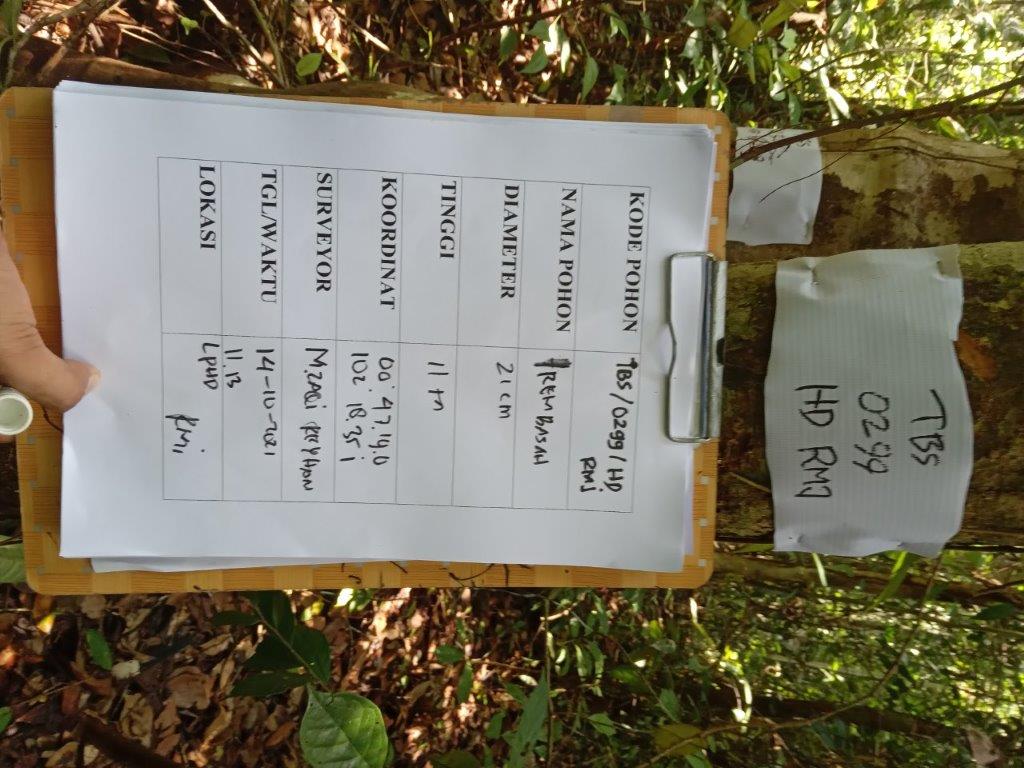 TBS
0299
HD RMJ
KODE POHON TBS/0299/HD
RMJ
NAMA POHON REMBASAH
DIAMETER 21 cm
TINGGI 11 m
KOORDINAT 00.47.19.0
102 18.35 i
SURVEYOR M.ZAQi REYHAN
TGL/WAKTU 14-10-2021
11.13
LOKASI LPHD
RMj